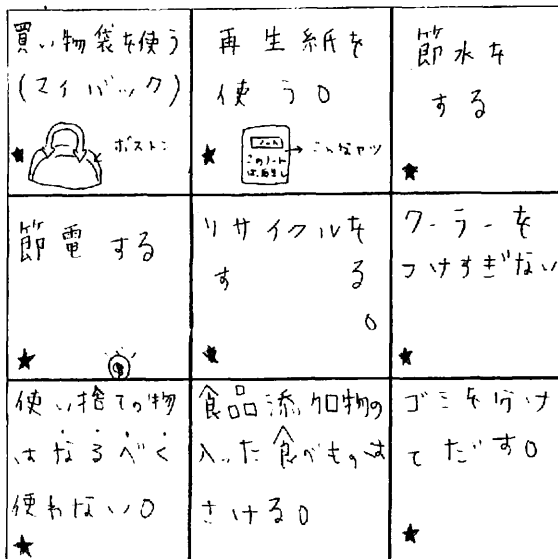 買い物袋を使う
(マイバック)
ボストン
再生紙を
使う。
ノート
このノート
は、再生し
→こんなヤツ
節水を
する
節電する
リサイクルを
する
。
クーラーを
つけすぎない
使い捨ての物
はなるべく
使わない。
食品添加物の
入った食べものは
さける。
ゴミを分け
てだす。